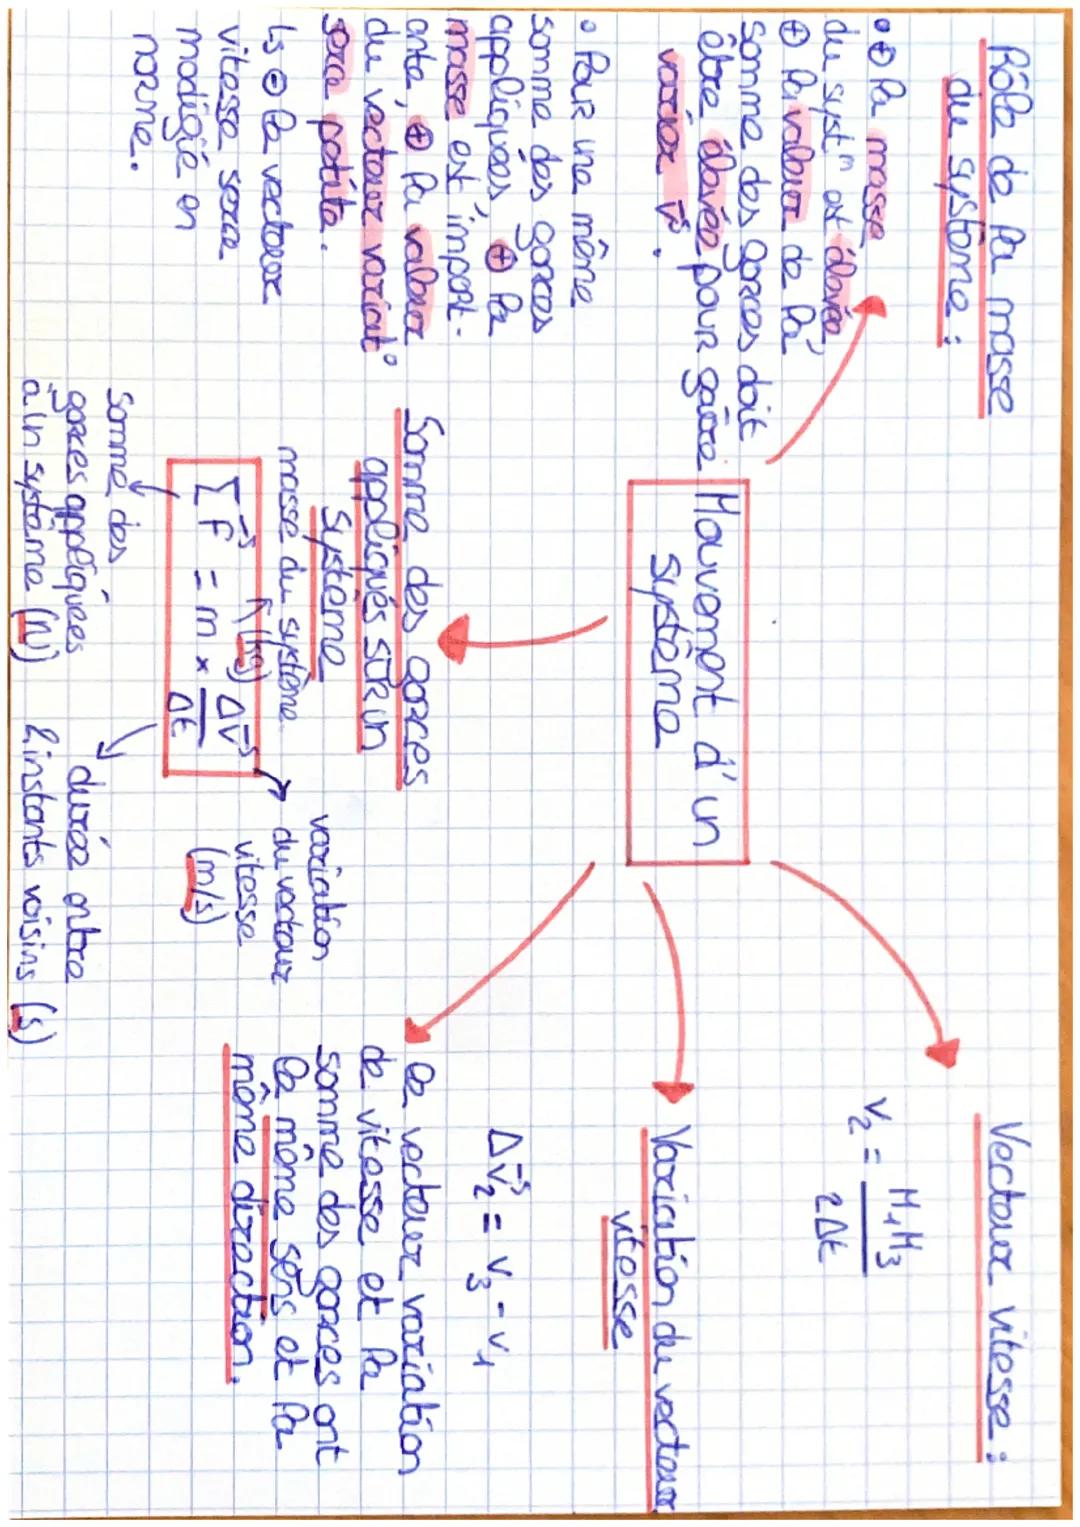 Rôle de la masse
du système :
• ⊕ la masse
du syst^m est élevée,
⊕ la valeur de la
somme des forces doit
être élevée pour faire
varier v⃗.
• Pour une même
somme des forces
appliquées, ⊕ la
masse est import-
ante, ⊕ la valeur
du vecteur variat°
sera petite.
↳ ⊖ le vecteur
vitesse sera
modifié en
norme.
Mouvement d'un
système
Somme des forces
appliqués sur un
système
masse du système
(kg)
ΣF⃗ = m × Δv⃗/Δt
Somme des
forces appliquées
à un système (N)
variation
du vecteur
vitesse
(m/s)
durée entre
2 instants voisins (s)
Vecteur vitesse :
v₂ = M₁M₃/2Δt
Variation du vecteur
vitesse
Δv⃗₂ = v₃ - v₁
le vecteur variation
de vitesse et la
somme des forces ont
le même sens et la
même direction.